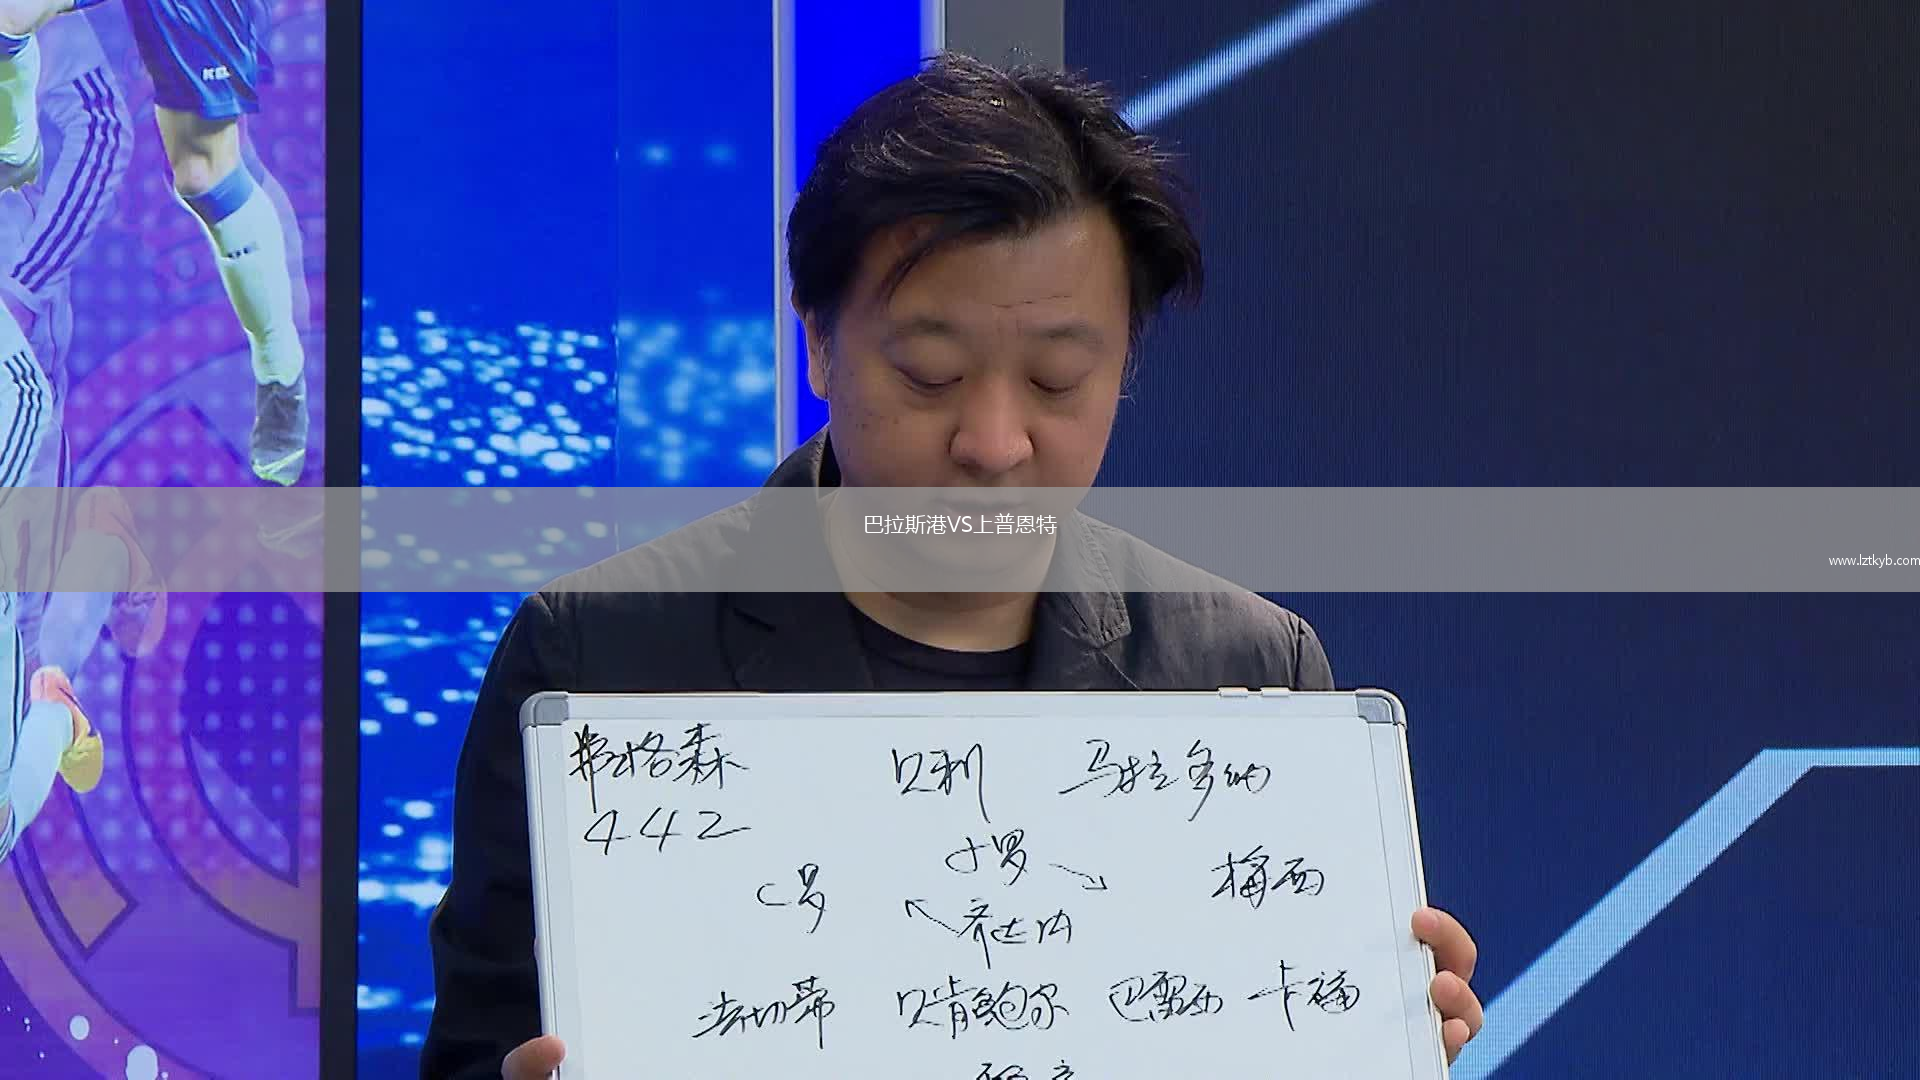 KEL
巴拉斯港VS上普恩特
www.lztkyb.com
弗格森 贝利 马拉多纳
442
小罗
C罗 梅西
齐达内
法切蒂 贝肯鲍尔 巴雷西 卡福